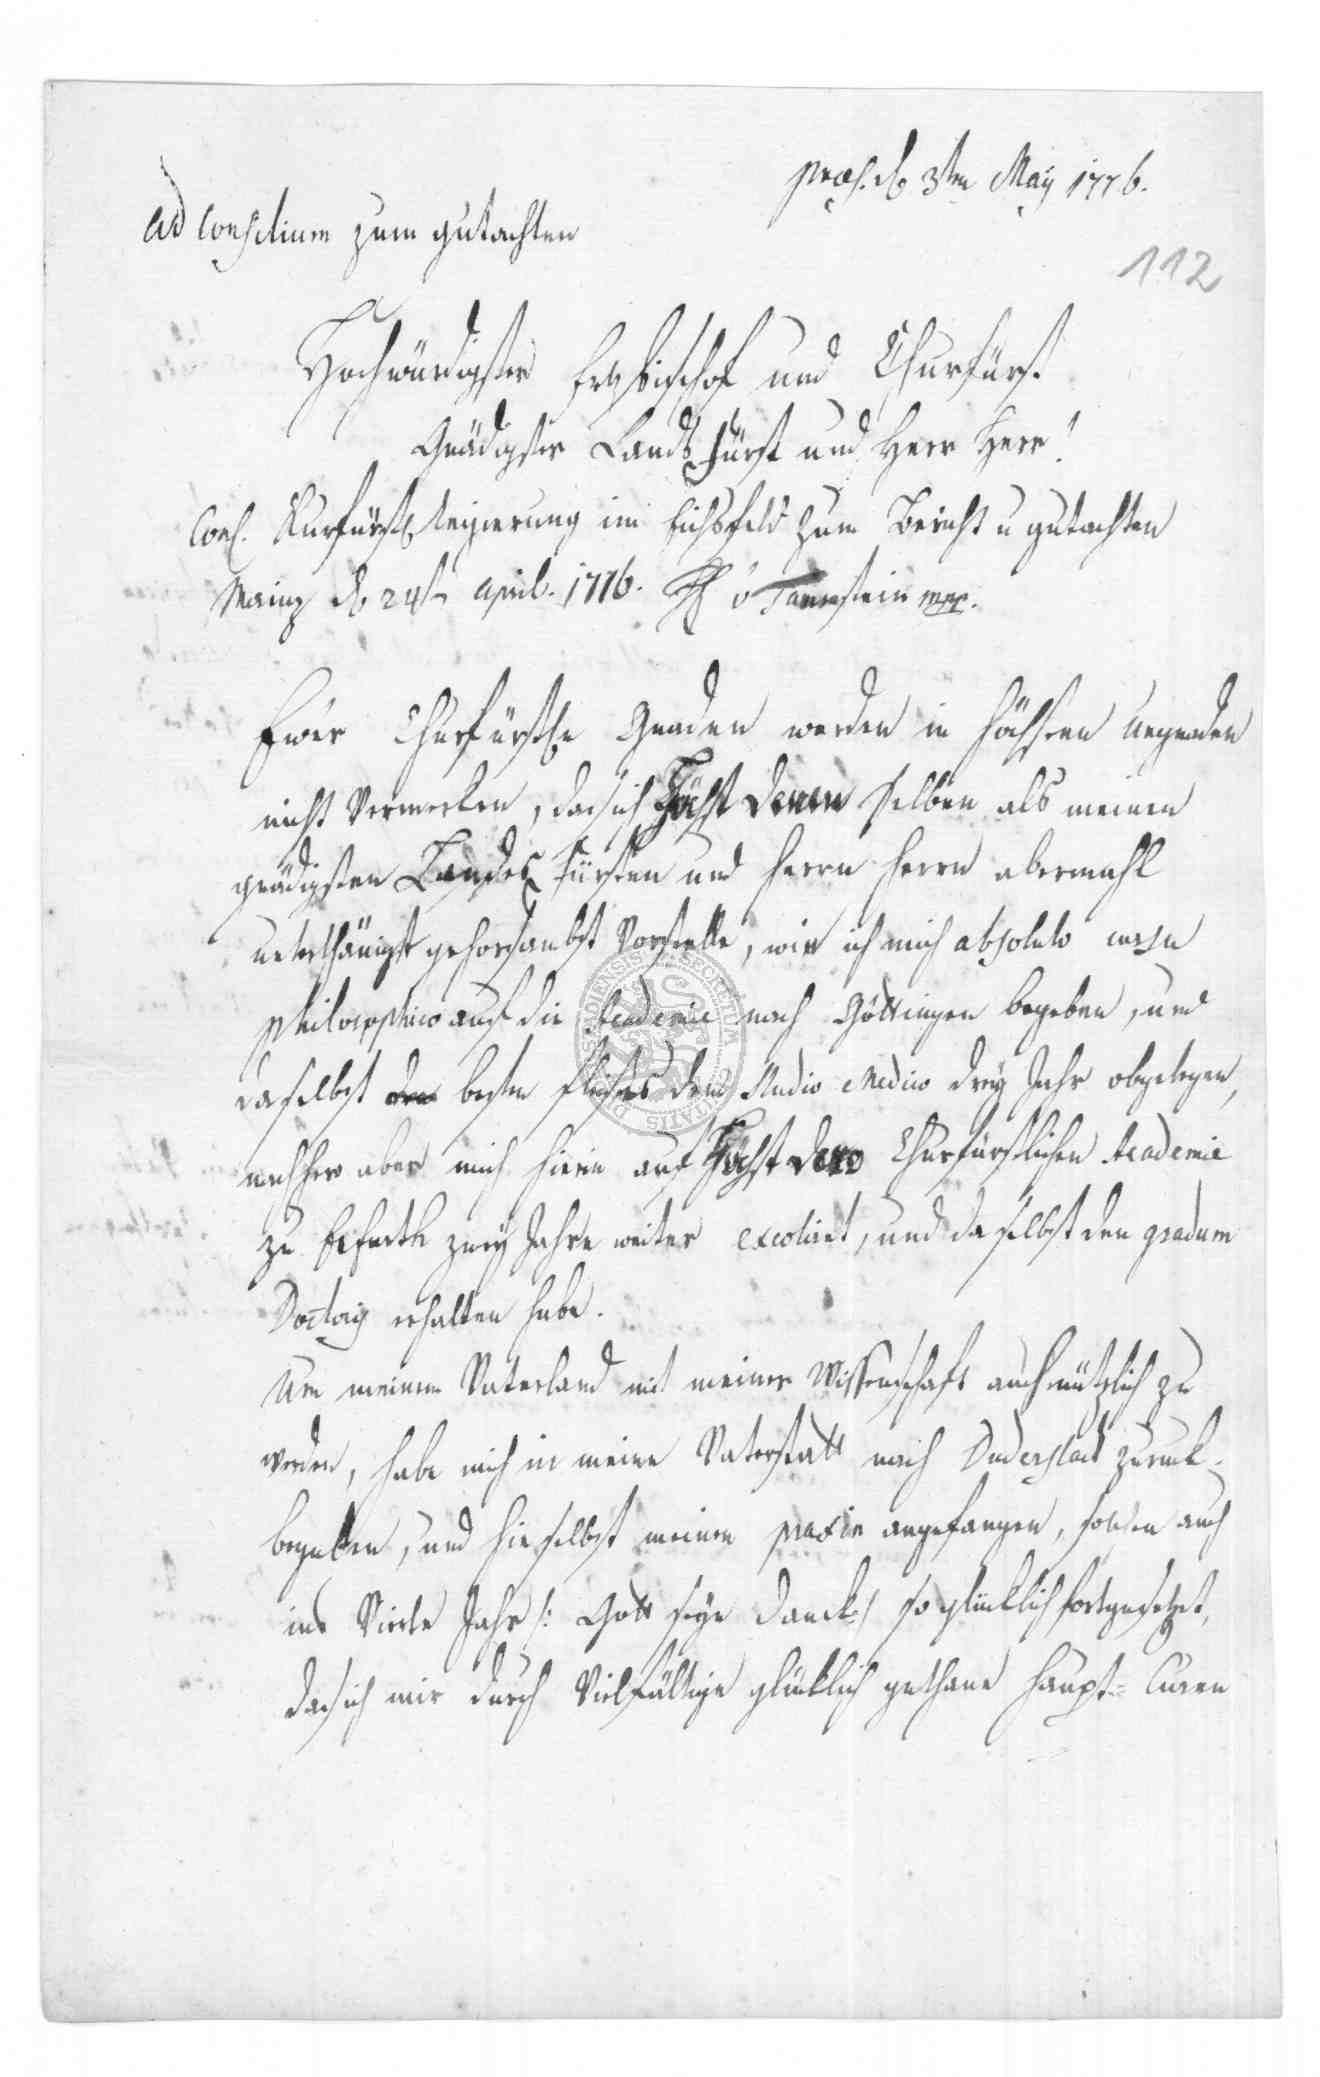 præs. d. 3ten May 1776.
ad Consilium zum gutachten
112
Hochwürdigster Ertzbischof und Churfürst
Gnädigster Lands Fürst und Herr Herr!
Cons. Kurfürstl. Regierung im Eichsfeld zum Bericht u gutachten
Mainz d. 24t april. 1776.
Ewer Churfürstle Gnaden werden in höchsten Ungnaden
nicht Vermerken, das ich Höchst Denen selben als meinem
gnädigsten Landes Fürsten und Herrn Herrn abermahl
unterthänigst gehorsambst Vorstelle, wie ich mich absoluto cursu
philosophico auf die Academie nach Göttingen begeben, und
daselbst besten fleises dem Studio Medico drey Jahr obgelegen,
nachher aber mich hierin auf Höchst Dero Churfürstlichen Academie
zu Erfurth zwey Jahre weiter excoliret, und daselbst den gradum
Doctoris erhalten habe.
Um meinem Vaterland mit meiner Wissenschaft auch nützlich zu
werden, habe mich in meine Vaterstatt nach Duderstadt zurück-
begeben, und hieselbst meinen praxin angefangen, solchen auch
ins Vierte Jahr /: Gott seye Danck :/ so glücklich fortgesetzet,
das ich mir durch Vielfältige glücklich gethane Haupt-Curen
DUDERSTADIENSIS SECRETUM CIVITATIS